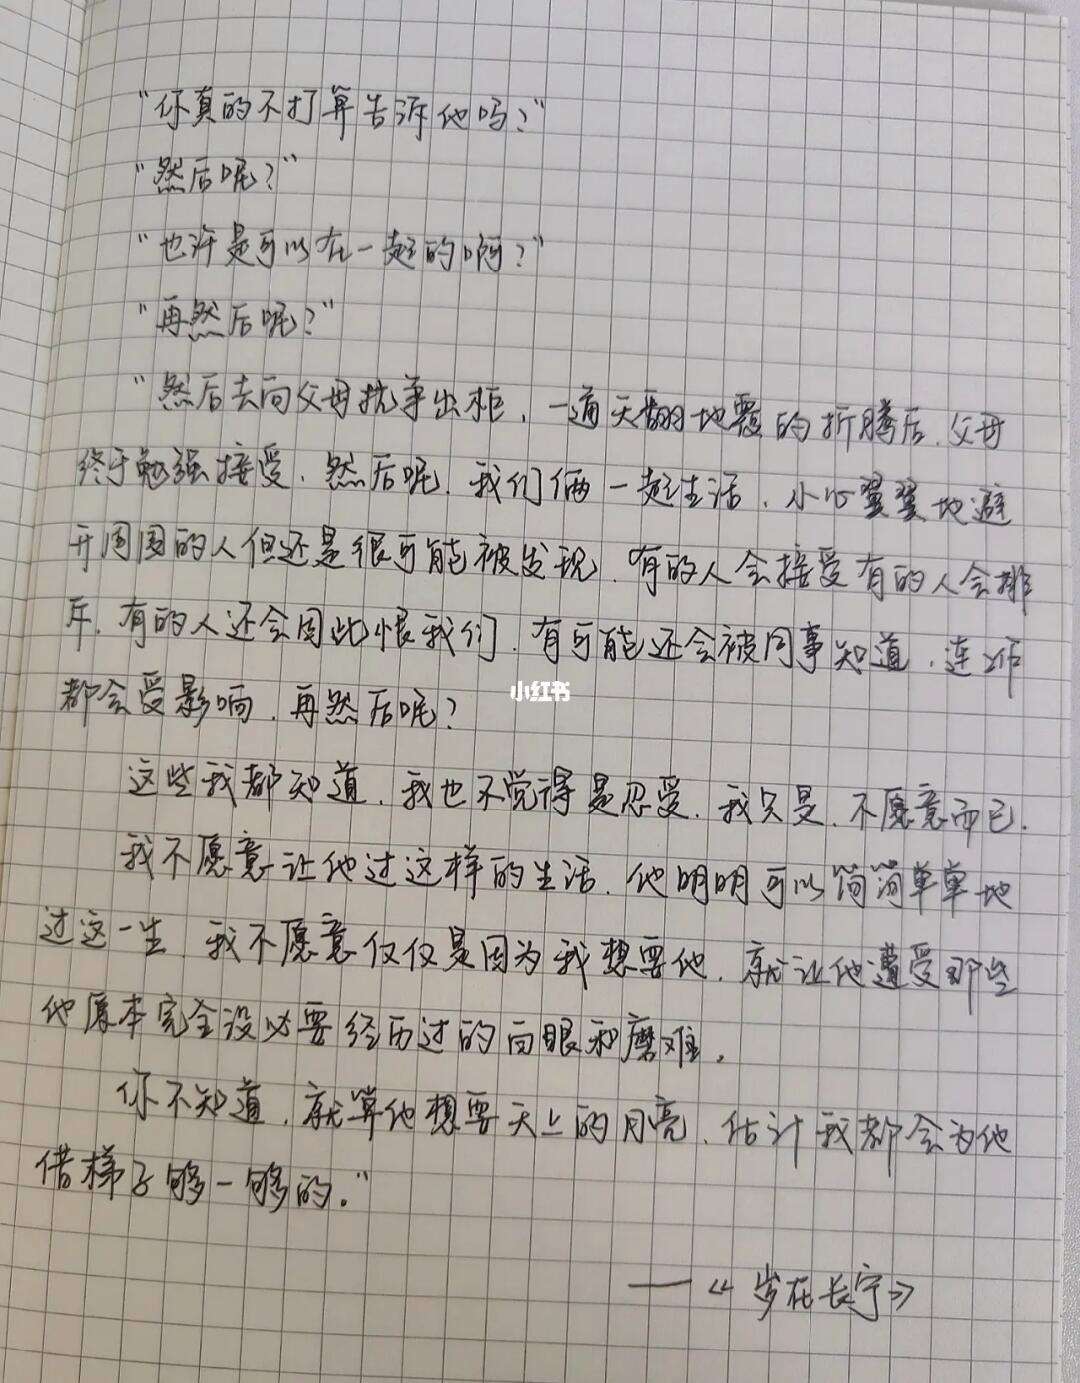 “你真的不打算告诉他吗？”
“然后呢？”
“也许是可以在一起的啊？”
“再然后呢？”
“然后去向父母抗争出柜，一通天翻地覆的折腾后，父母
终于勉强接受，然后呢，我们俩一起生活，小心翼翼地避
开周围的人但还是很可能被发现，有的人会接受有的人会排
斥，有的人还会因此恨我们，有可能还会被同事知道，连工作
都会受影响，再然后呢？
小红书
这些我都知道，我也不觉得是忍受，我只是，不愿意而已．
我不愿意让他过这样的生活，他明明可以简简单单地
过这一生，我不愿意仅仅是因为我想要他，就让他遭受那些
他原本完全没必要经历过的白眼和磨难．
你不知道，就算他想要天上的月亮，估计我都会为他
借梯子够一够的．”
——《岁在长宁》